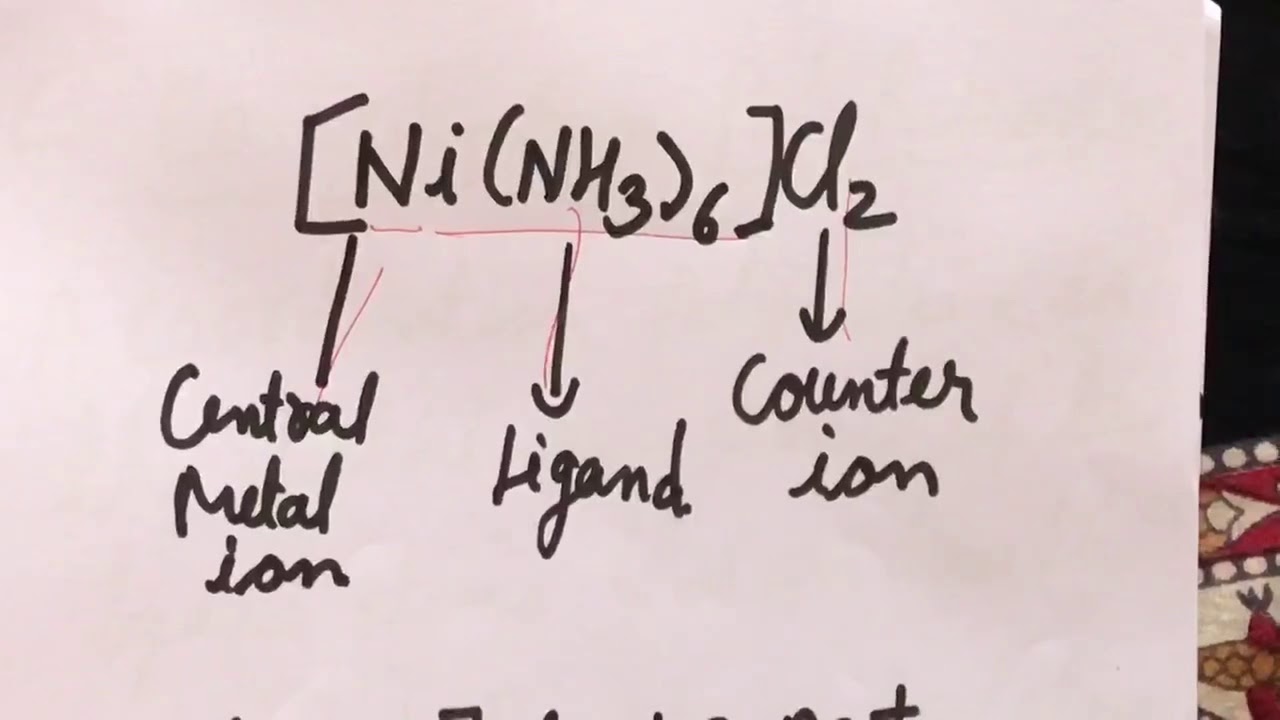 [Ni(NH3)6]Cl2
Central
Metal
ion
Ligand
Counter
ion